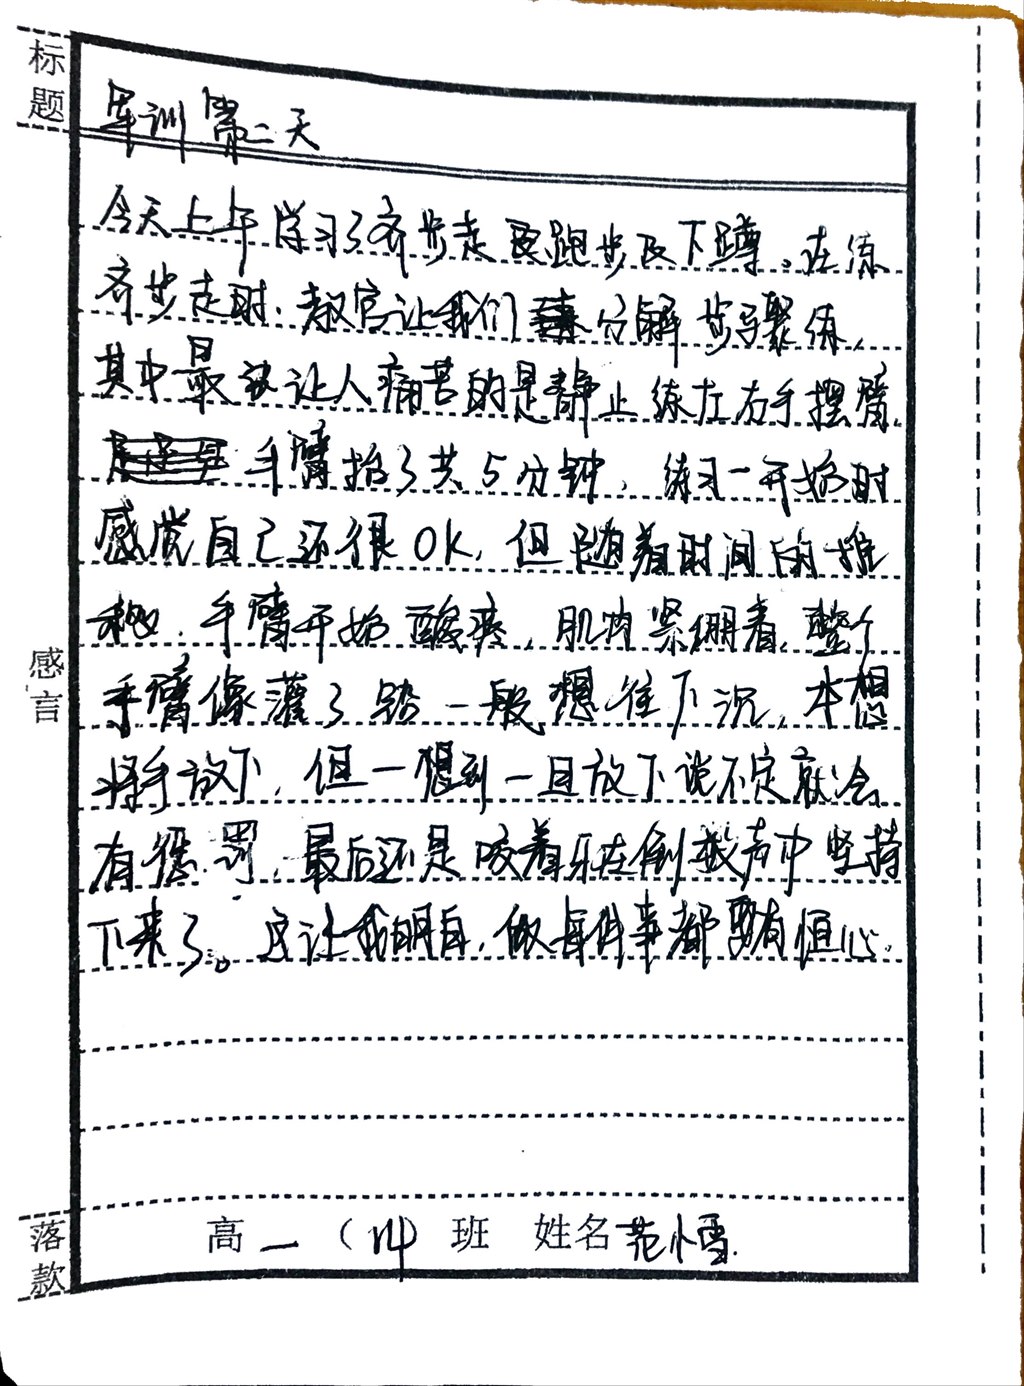 标题
军训第二天
今天上午学习了齐步走跑步及下蹲。在练
齐步走时,教官让我们分解步骤练,
其中最让人痛苦的是静止练左右手摆臂,
手臂抬了共5分钟,练习一开始时
感觉自己还很OK,但随着时间的推
移,手臂开始酸疼,肌肉紧绷着,整个
手臂像灌了铅一般想往下沉,本想
将手放下,但一想到一旦放下说不定就会
有惩罚,最后还是咬着牙在倒数声中坚持
下来了。这让我明白,做每件事都要有恒心.
感言
落款
高一(14)班 姓名范小雪.